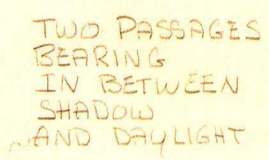 TWO PASSAGES
BEARING
IN BETWEEN
SHADOW
AND DAYLIGHT